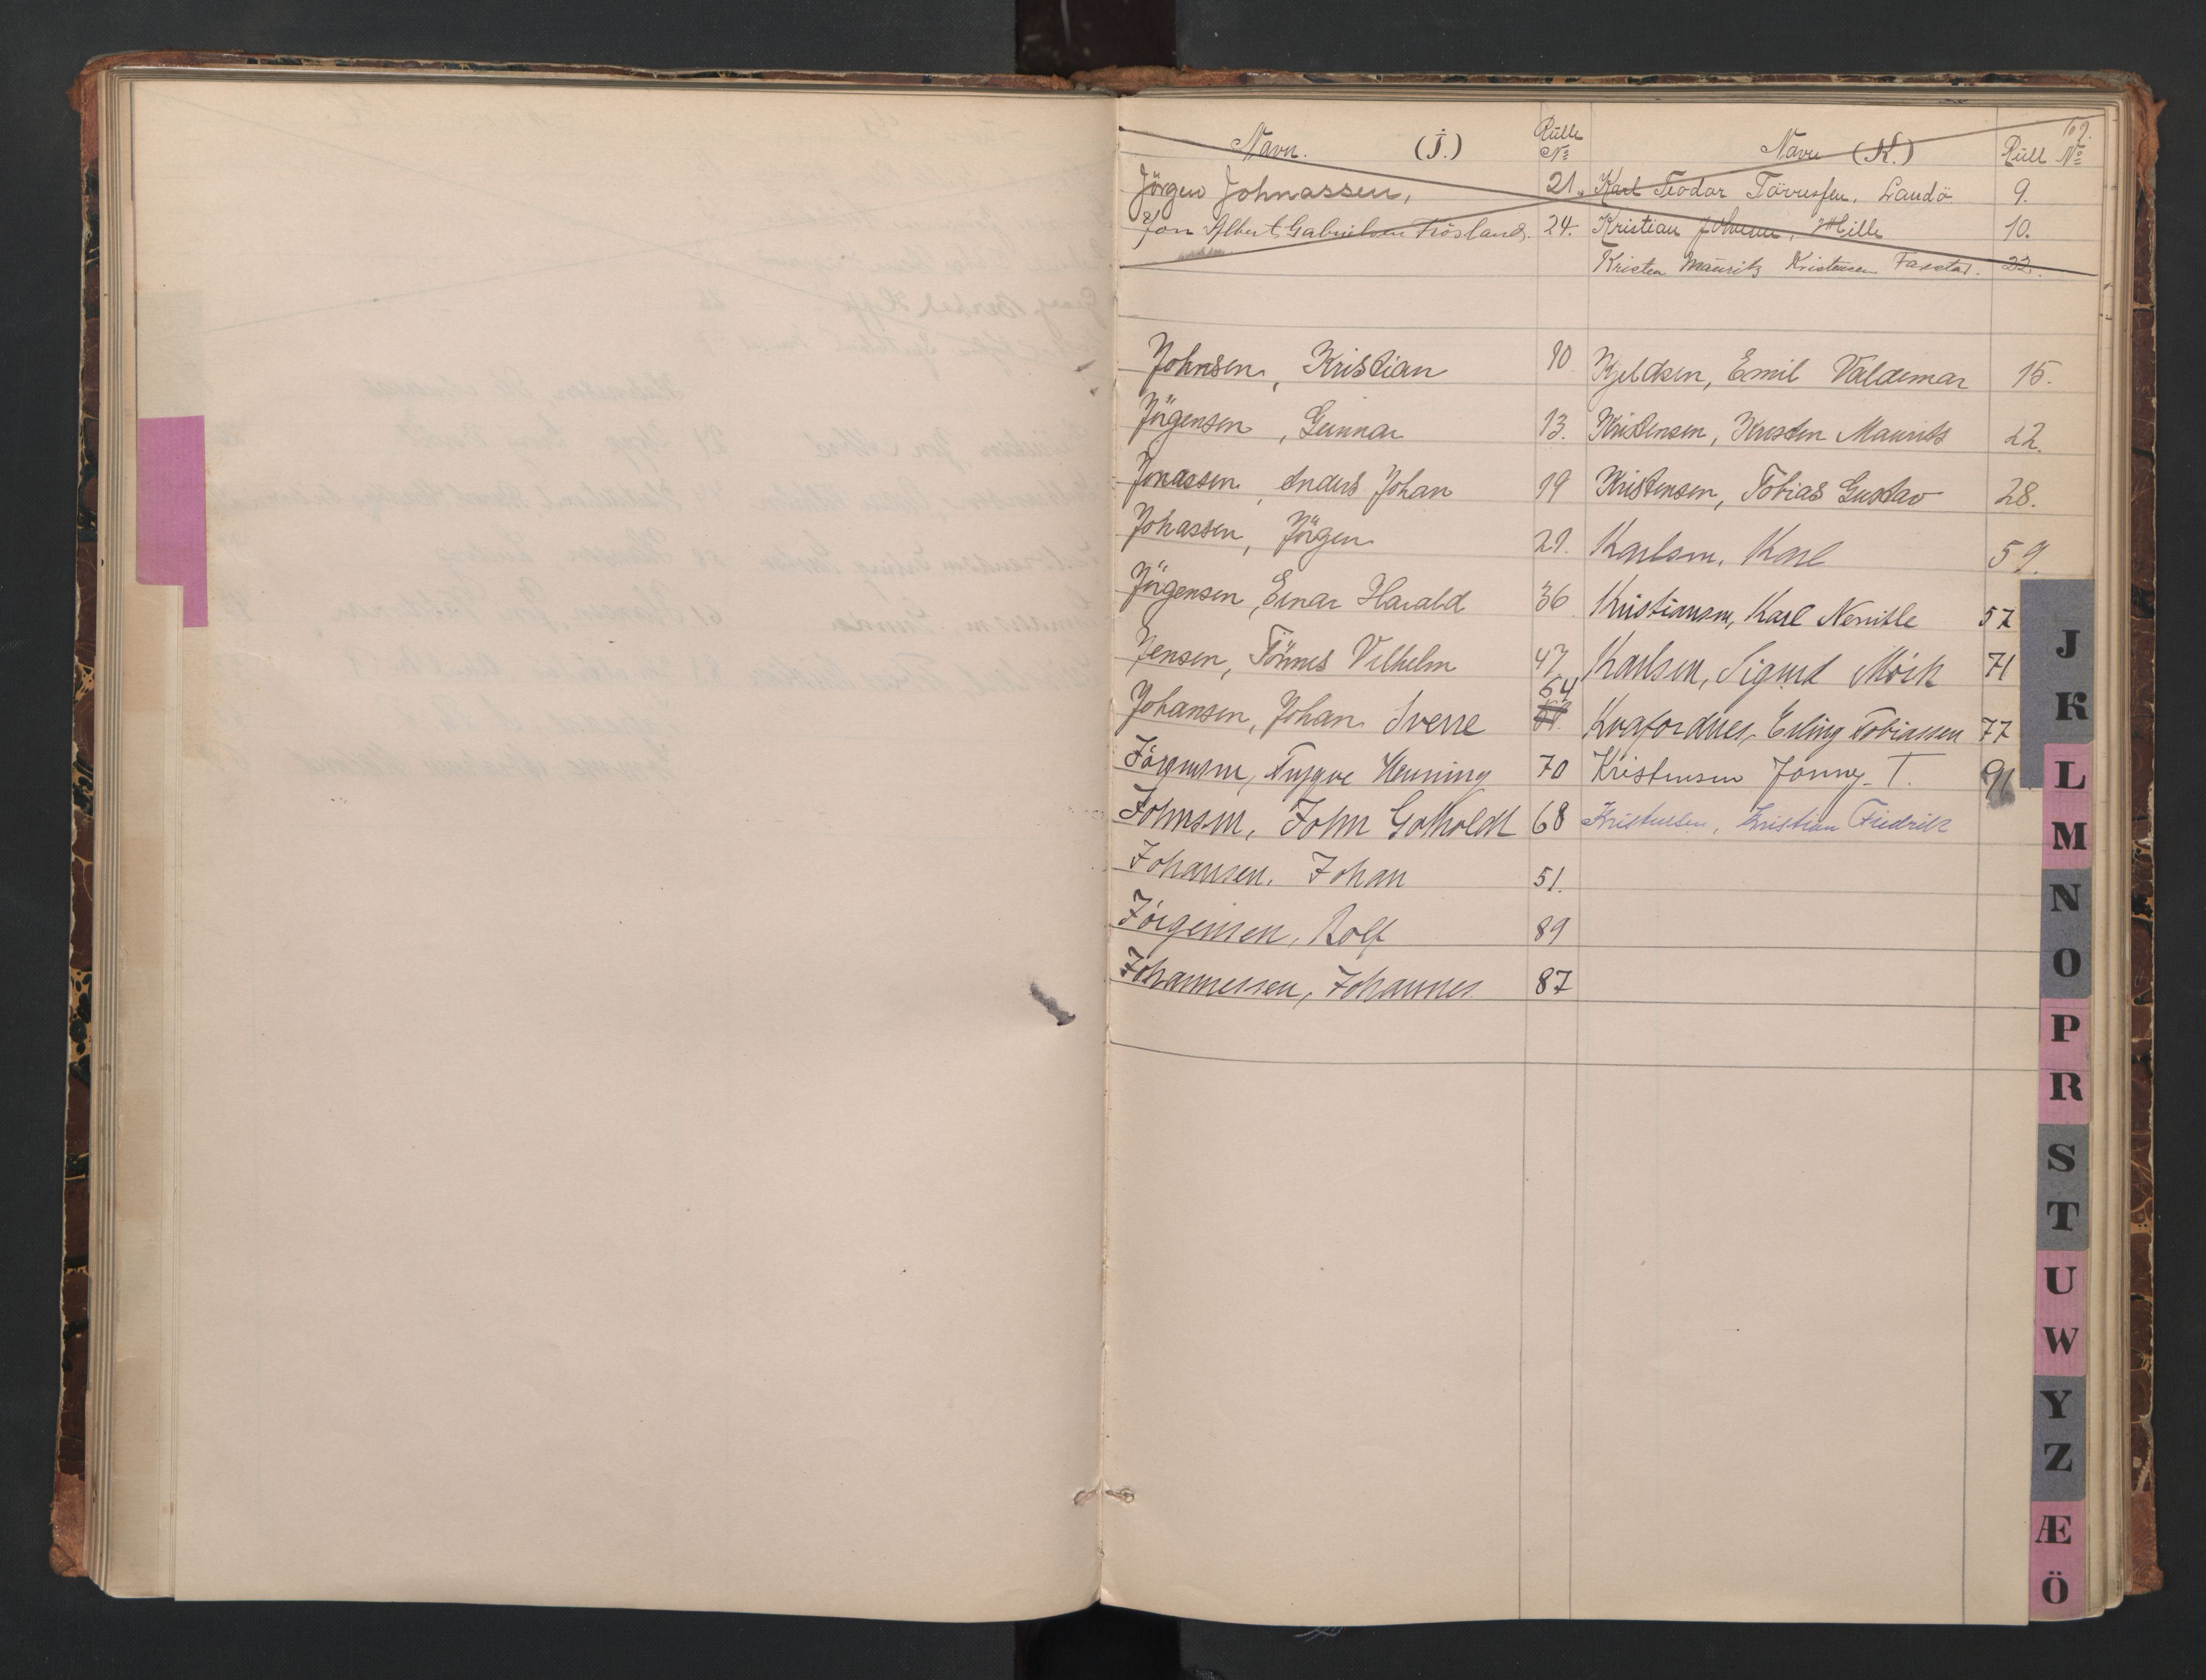 Navn. (J.) Rülle No Navn (K.) Rüll No
Jörgen Johnassen, 21. Karl Teodor Törresen, Landö 9.
Jon Albert Gabrielsen Frösland. 24. Kristian Johnsen, Hille 10.
Kristen Mauritz Kristensen 22.
Johnsen, Kristian 10 Kjeldsen, Emil Valdemar 15.
Jörgensen, Gunnar 13. Kristensen, Kristen Maurits 22.
Jonassen, Anders Johan 19 Kristensen, Tobias Gustav 28.
Johassen, Jörgen 21. Karlsen, Karl 59.
Jörgensen, Einar Harald 36 Kristiansen, Karl 57
Jensen, Tönnes Vilhelm 47 Karlsen, Sigurd 71
Johansen, Johan Sverre 54 Kvafordnes, Erling Tobiassen 77
Jörgensen, Trygve Henning 70 Kristensen Jonny T. 91
Johnsen, John Gotholdt 68 Kristensen, Kristian Fredrik
Johansen, Johan 51.
Jörgensen, Rolf 89
Johannessen, Johannes 87
J
K
L
M
N
O
P
R
S
T
U
W
Y
Z
Æ
Ö